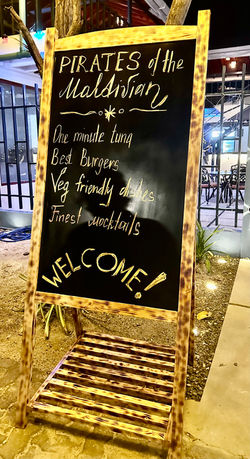 PIRATES of the
Maldivian
One minute tuna
Best Burgers
Veg friendly dishes
Finest mocktails
WELCOME!